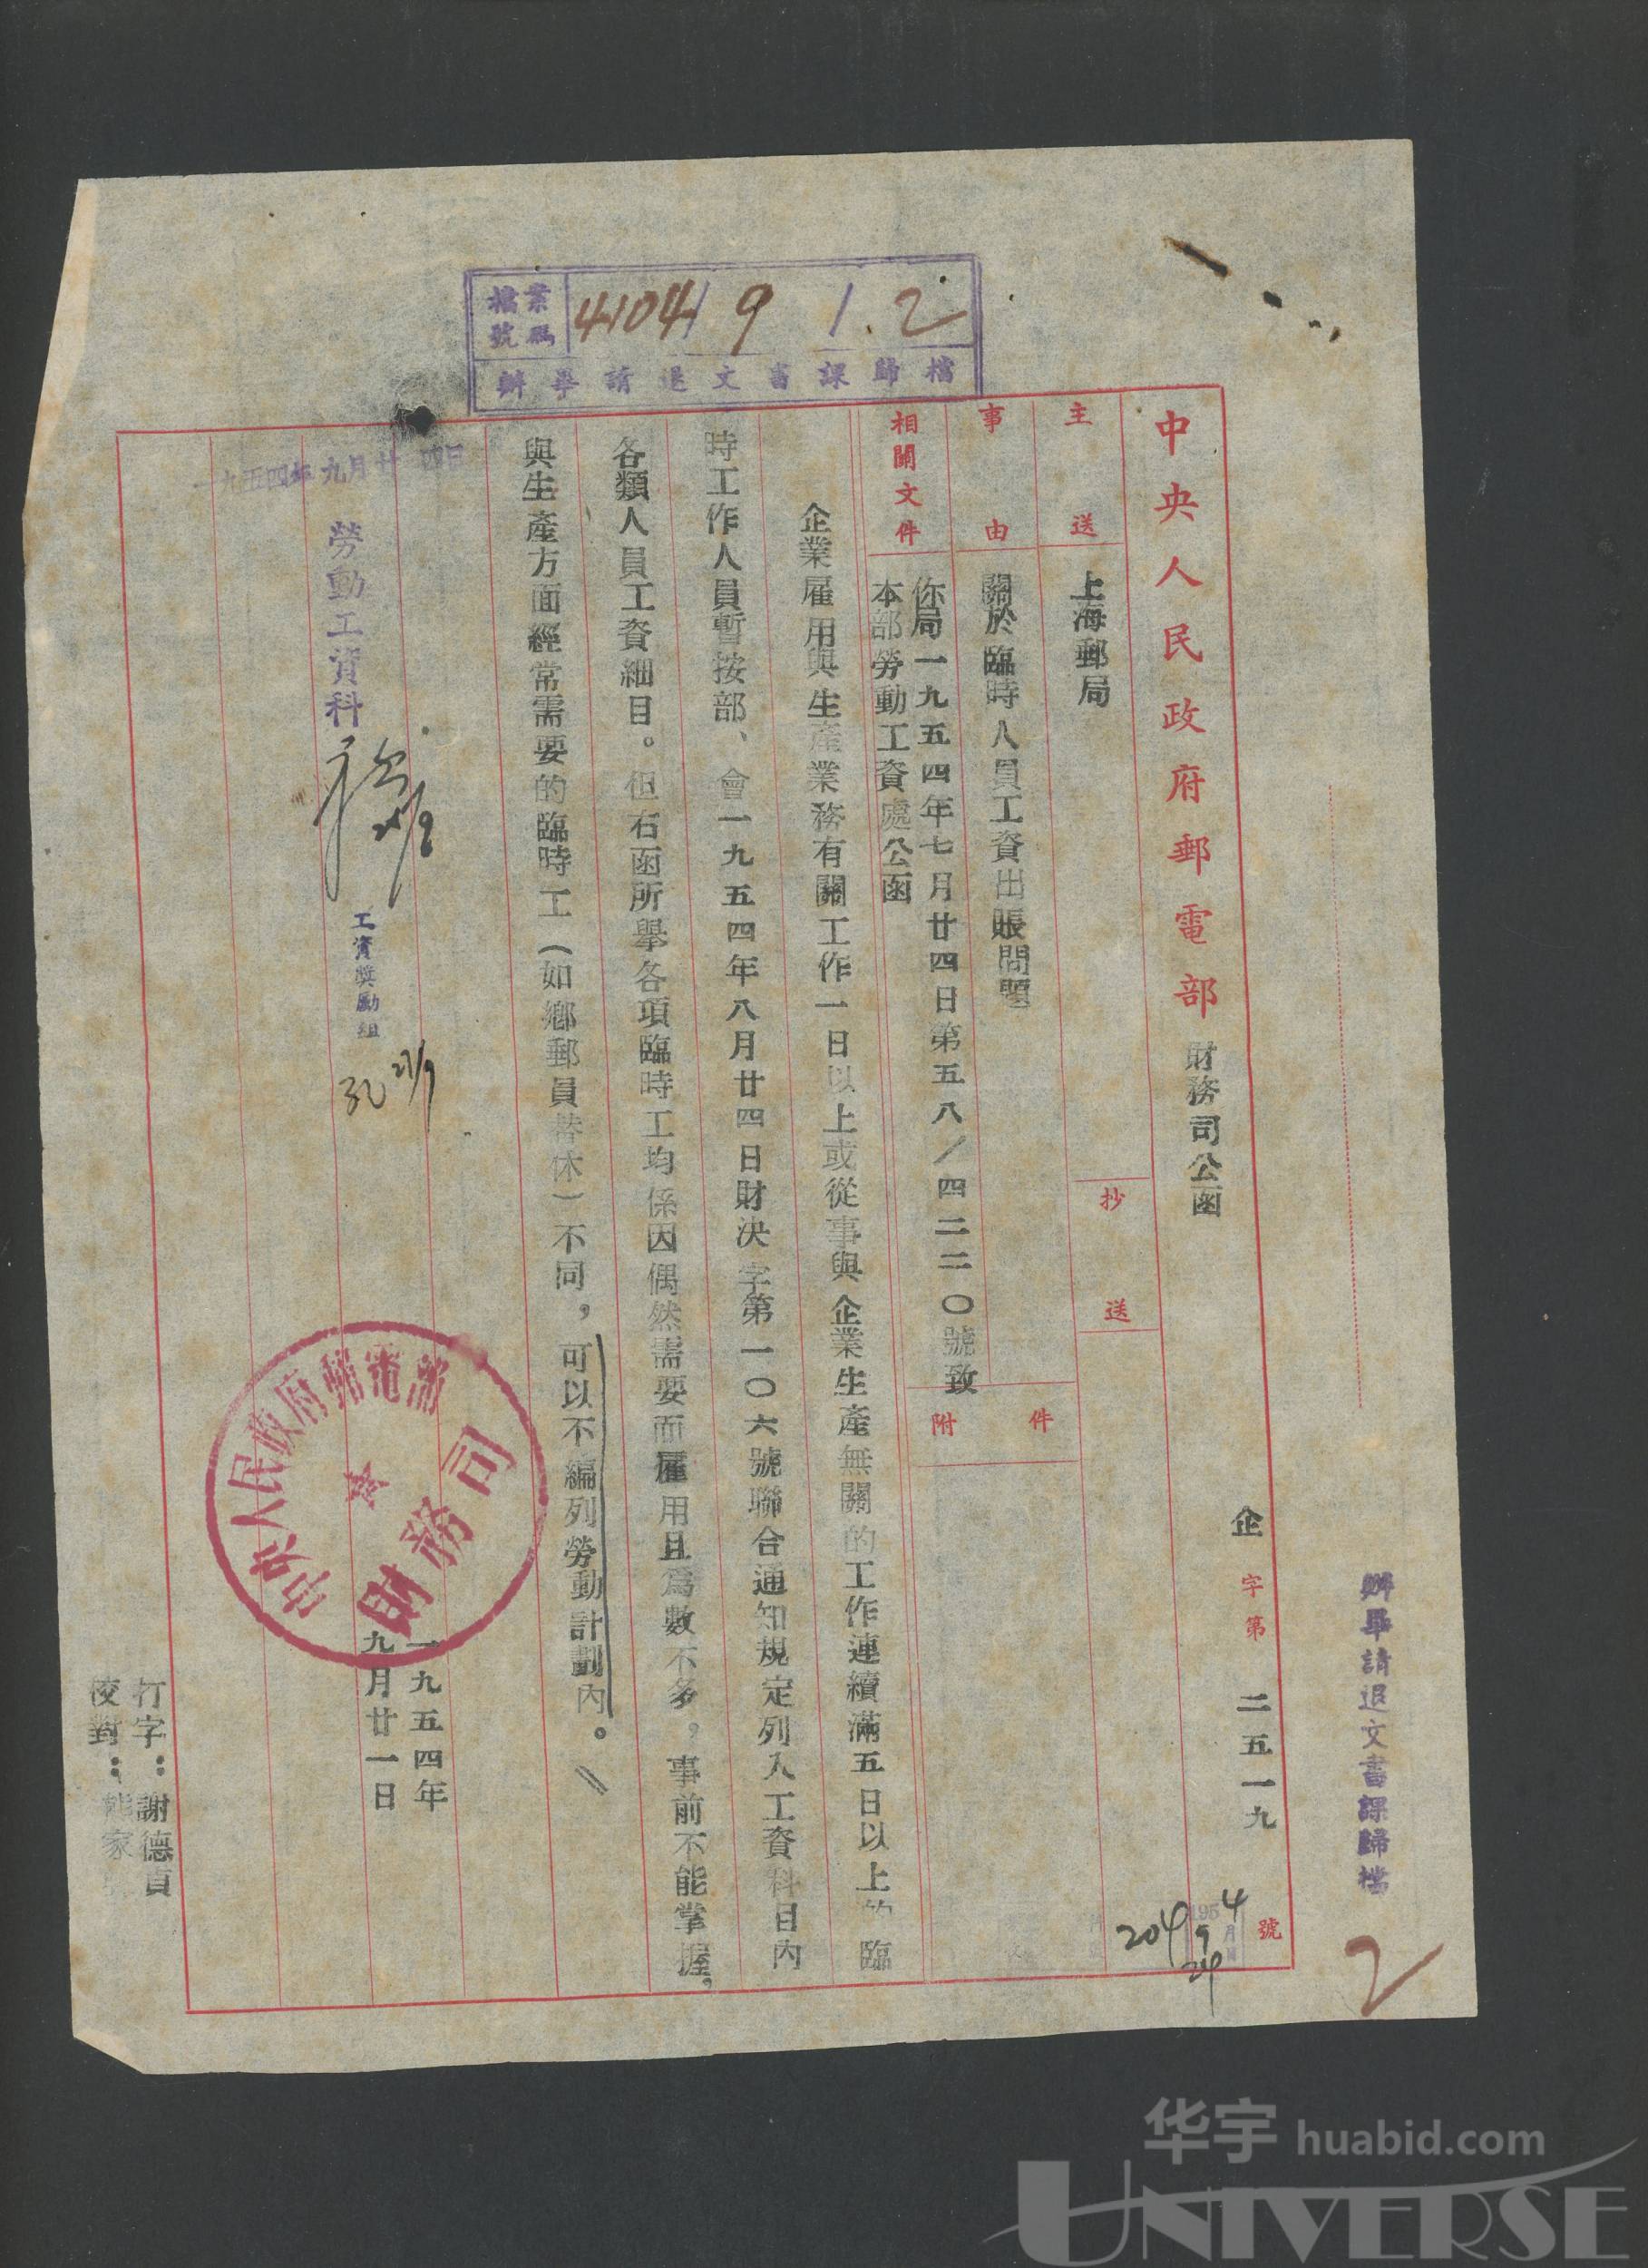 檔案
號碼
41041 9 1.2
辦畢請退文書課歸檔
中央人民政府郵電部
財務司公函
企字第二五一九號
辦畢請退文書課歸檔
2
主送
上海郵局
抄送
事由
關於臨時人員工資出賬問題
附件
相關文件
你局一九五四年七月廿四日第五八/四二二〇號致
本部勞動工資處公函
企業雇用與生產業務有關工作一日以上或從事與企業生產無關的工作連續滿五日以上的臨
時工作人員暫按部、會一九五四年八月廿四日財決字第一〇六號聯合通知規定列入工資科目內
各類人員工資細目。但右函所舉各項臨時工均係因偶然需要而雇用且為數不多,事前不能掌握,
與生產方面經常需要的臨時工(如鄉郵員替休)不同,可以不編列勞動計劃內。
一九五四年九月廿四日
勞動工資科
工資獎勵組
中央人民政府郵電部
財務司
一九五四年
九月廿一日
打字:謝德貞
校對:熊家
204
1954
9
24
月
华宇 huabid.com
UNIVERSE